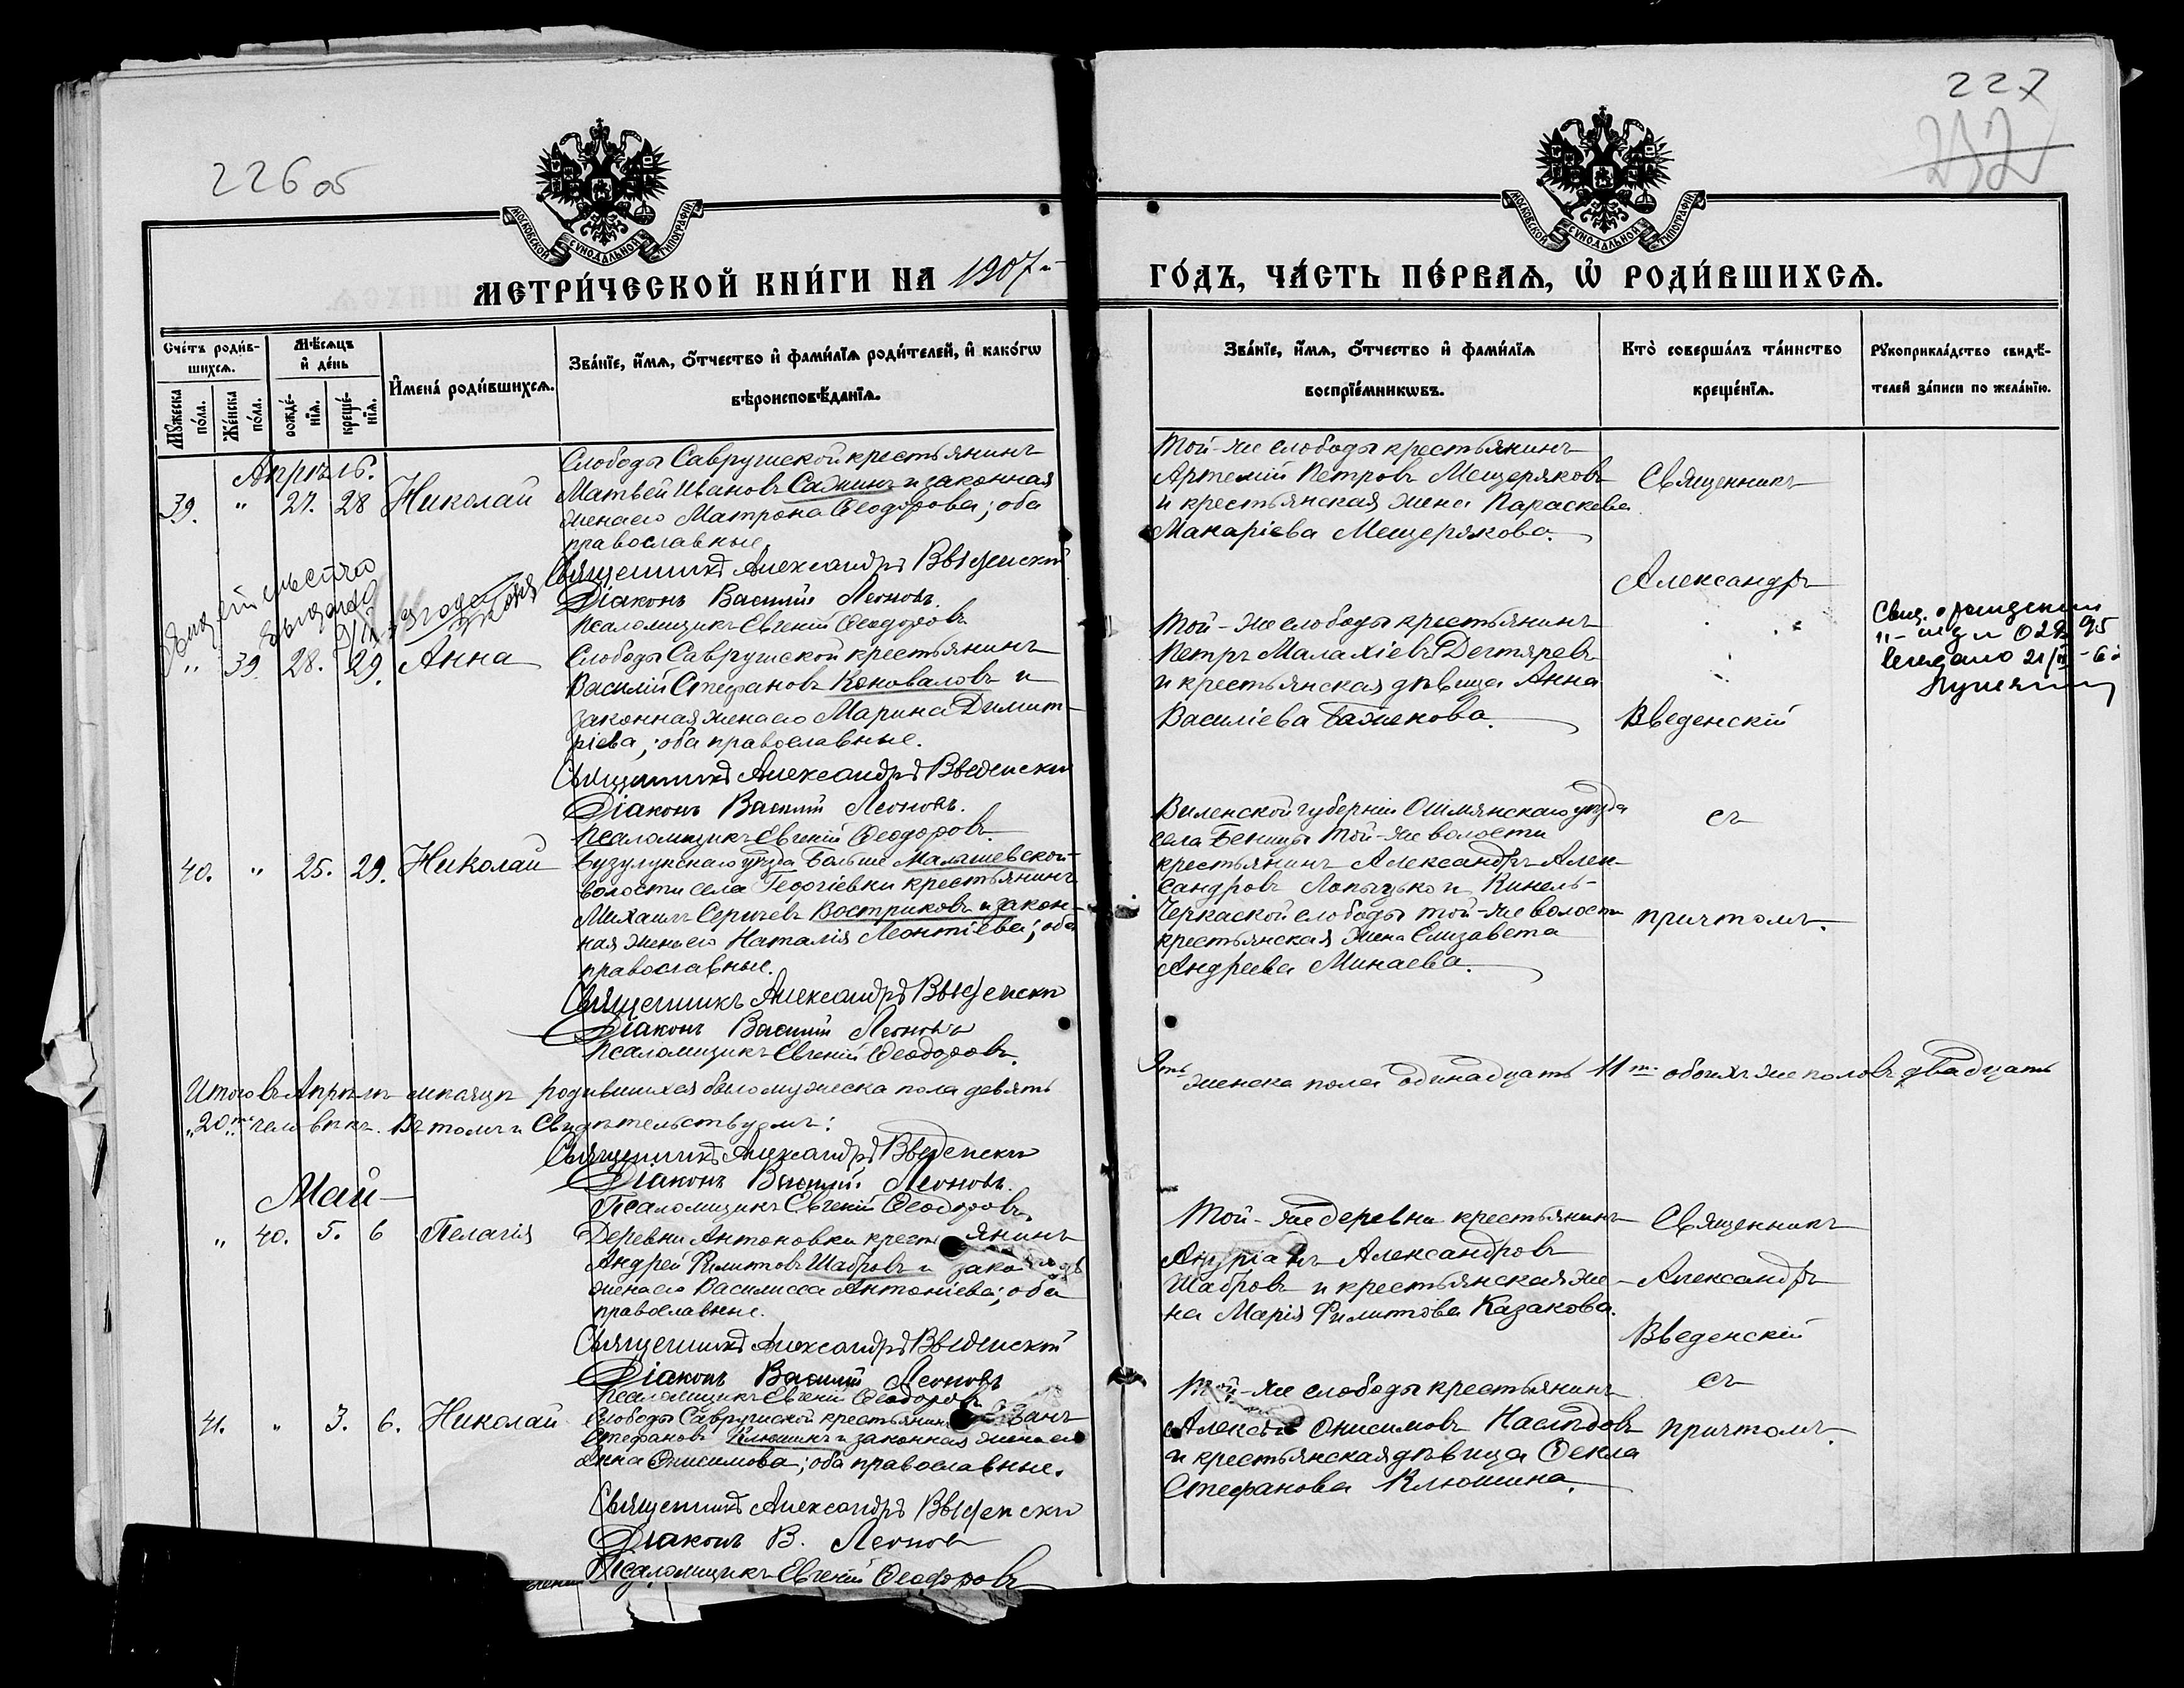 226 об
227
232
МОСКОВСКОЙ СѴНОДАЛЬНОЙ ТИПОГРАФІИ
МОСКОВСКОЙ СѴНОДАЛЬНОЙ ТИПОГРАФІИ
МЕТРИ́ЧЕСКОЙ КНИ́ГИ НА 1907й
ГО́ДЪ, ЧА́СТЬ ПЕ́РВАѦ, Ѡ҆ РОДИ́ВШИХСѦ.
Сче́тъ роди́в-
шихсѧ.
Мꙋ́жеска по́ла.
Же́нска по́ла.
Мѣ́сѧцъ и҆ де́нь
рожде́-
нїѧ.
креще́-
нїѧ.
И҆мена̀ роди́вшихсѧ.
Зва́нїе, и҆́мѧ, ѻ҆́тчество и҆ фами́лїѧ роди́телей, и҆ како́гѡ
вѣроисповѣ́данїѧ.
Зва́нїе, и҆́мѧ, ѻ҆́тчество и҆ фами́лїѧ
воспрїе́мникѡвъ.
Кто̀ соверша́лъ та́инство
креще́нїѧ.
Рꙋкоприкла́дство свидѣ́-
телей за́писи по жела́нїю.
Апрѣль.
39. " 27. 28 Николай
Слободы Саврушской крестьянинъ
Матвей Ивановъ Сажинъ и законная
жена его Матрона Ѳеодорова; оба
православные.
Священникъ Александръ Введенский
Діаконъ Василій Леоновъ.
Псаломщикъ Евгеній Ѳеодоровъ
Той-же слободы крестьянинъ
Артемій Петровъ Мещеряковъ
и крестьянская жена Параскева
Макаріева Мещерякова.
Священникъ
Александръ
Введенскій
съ
причтомъ.
" 39. 28. 29. Анна
Слободы Саврушской крестьянинъ
Василій Стефановъ Коноваловъ и
законная жена его Марина Димит-
ріева; оба православные.
Священникъ Александръ Введенский
Діаконъ Василій Леоновъ.
Псаломщикъ Евгеній Ѳеодоровъ.
Той-же слободы крестьянинъ
Петръ Малахіевъ Дегтяревъ
и крестьянская дѣвица Анна
Василіева Баженова.
Свид. о рождении
40. " 25. 29. Николай
Бузулукскаго уѣзда Больше Малышевской
волости села Георгіевки крестьянинъ
Михаилъ Сергѣевъ Востриковъ и закон-
ная жена его Наталія Леонтіева; оба
православные.
Священникъ Александръ Введенский
Діаконъ Василій Леоновъ
Псаломщикъ Евгеній Ѳеодоровъ.
Виленской губерніи Ошмянскаго уѣзда
села Беницы той-же волости
крестьянинъ Александръ Алек-
сандровъ Лопыцько и Кинель-
Черкаской слободы той-же волости
крестьянская жена Елизавета
Андреева Минаева.
Итого въ Апрѣлѣ мѣсяцѣ родившихся было мужеска пола девять
9ть женска пола одинадцать 11ть обоихъ же половъ двадцать
"20ть" человѣкъ. Въ томъ и свидѣтельствуемъ:
Священникъ Александръ Введенский
Діаконъ Василій Леоновъ.
Псаломщикъ Евгеній Ѳеодоровъ.
Май
" 40. 5. 6 Пелагія
Деревни Антоновки крестьянинъ
Андрей Филитовъ Шабровъ и
жена его Василисса Антоніева; оба
православные.
Священникъ Александръ Введенский
Діаконъ Василій Леоновъ
Псаломщикъ Евгеній Ѳеодоровъ
Той-же деревни крестьянинъ
Андріанъ Александровъ
Шабровъ и крестьянская же-
на Марія Филитова Казакова.
Священникъ
Александръ
Введенскій
съ
причтомъ.
41. " 3. 6. Николай
Слободы Саврушской крестьянинъ
Стефановъ Клюшинъ и законная жена его
Анна Онисимова; оба православные.
Священникъ Александръ Введенский
Діаконъ В. Леонов
Псаломщикъ Евгеній Ѳеодоровъ
Той-же слободы крестьянинъ
Алексѣй Онисимовъ Наслѣдовъ
и крестьянская дѣвица Ѳекла
Стефанова Клюшина.